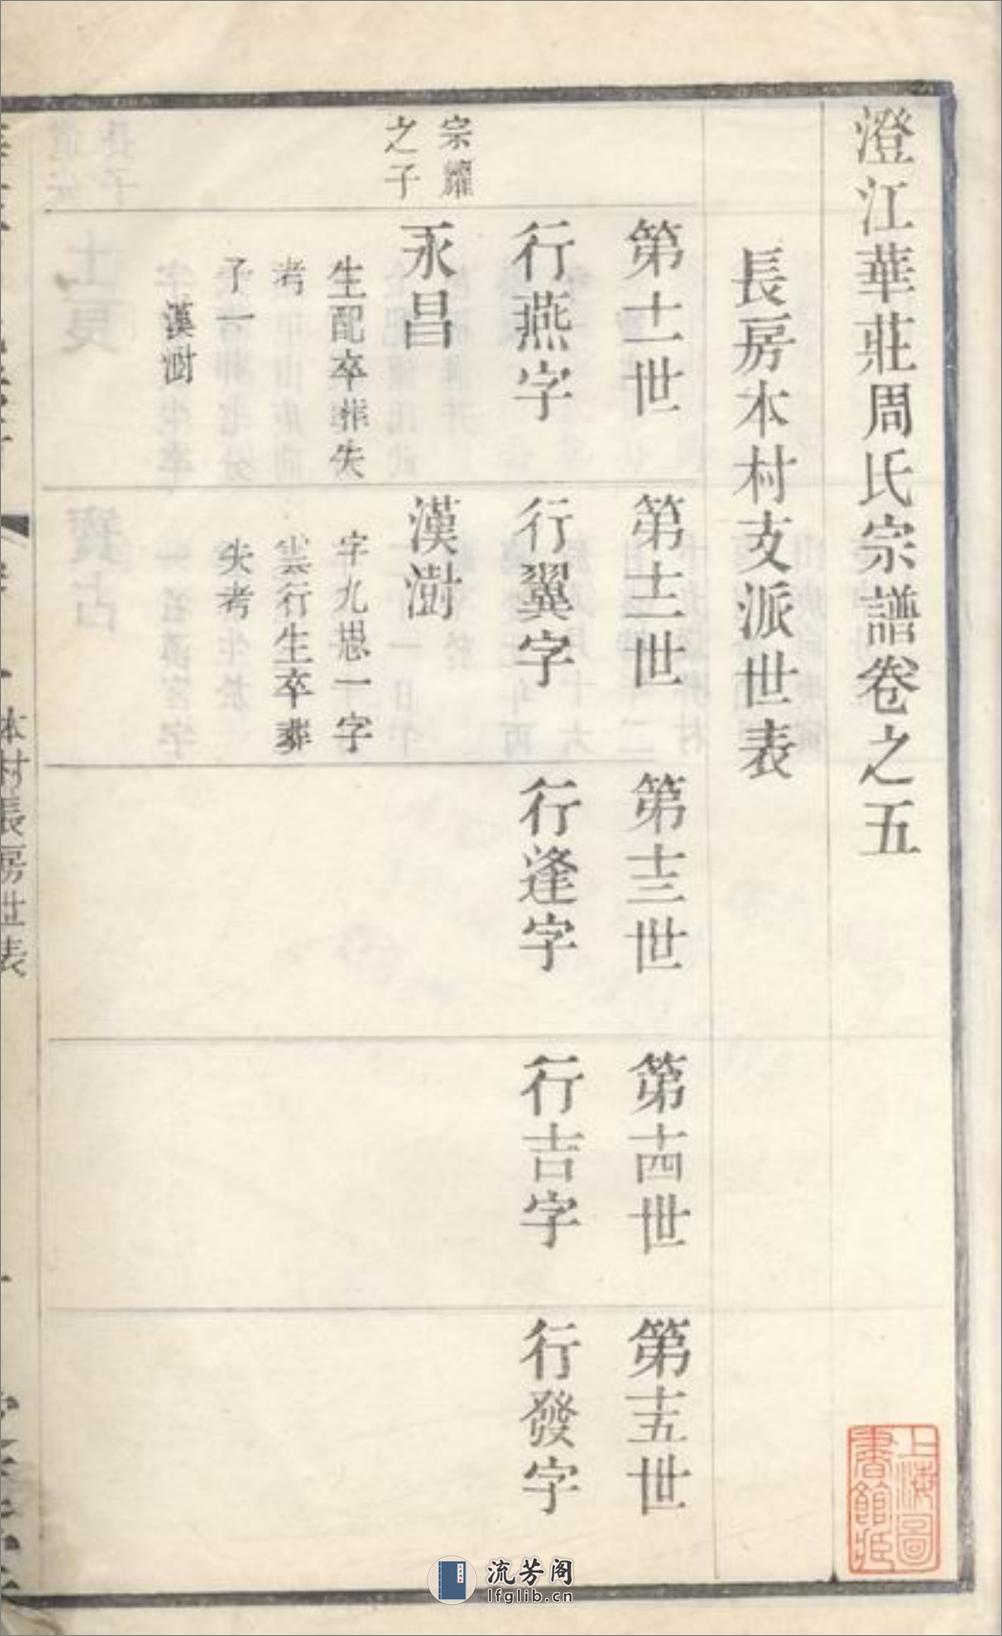 澄江華莊周氏宗譜卷之五
長房本村支派世表
第十一世
行燕字
宗耀
之子
永昌
生配卒葬失
考
子一
漢澍
第十二世
行翼字
漢澍
字九思一字
雲行生卒葬
失考
第十三世
行逢字
第十四世
行吉字
第十五世
行發字
本村長房世表
上海圖
書館藏
流芳阁
lfglib.cn